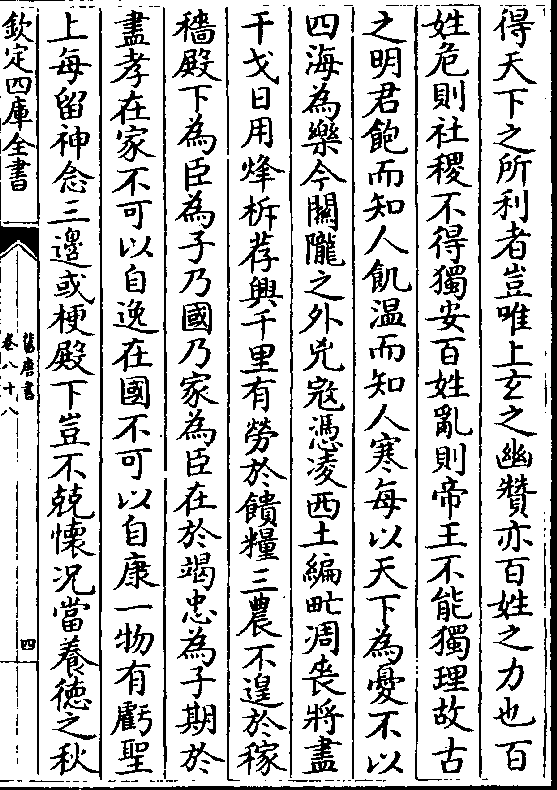 得天下之所利者豈唯上玄之幽贊亦百姓之力也百
姓危則社稷不得獨安百姓亂則帝王不能獨理故古
之明君飽而知人飢溫而知人寒每以天下為憂不以
四海為樂今關隴之外兇寇憑凌西土編甿凋喪將盡
干戈日用烽柝荐興千里有勞於饋糧三農不遑於稼
穡殿下為臣為子乃國乃家為臣在於竭忠為子期於
盡孝在家不可以自逸在國不可以自康一物有虧聖
上每留神念三邊或梗殿下豈不兢懷況當養德之秋
欽定四庫全書
舊唐書
卷八十八
四